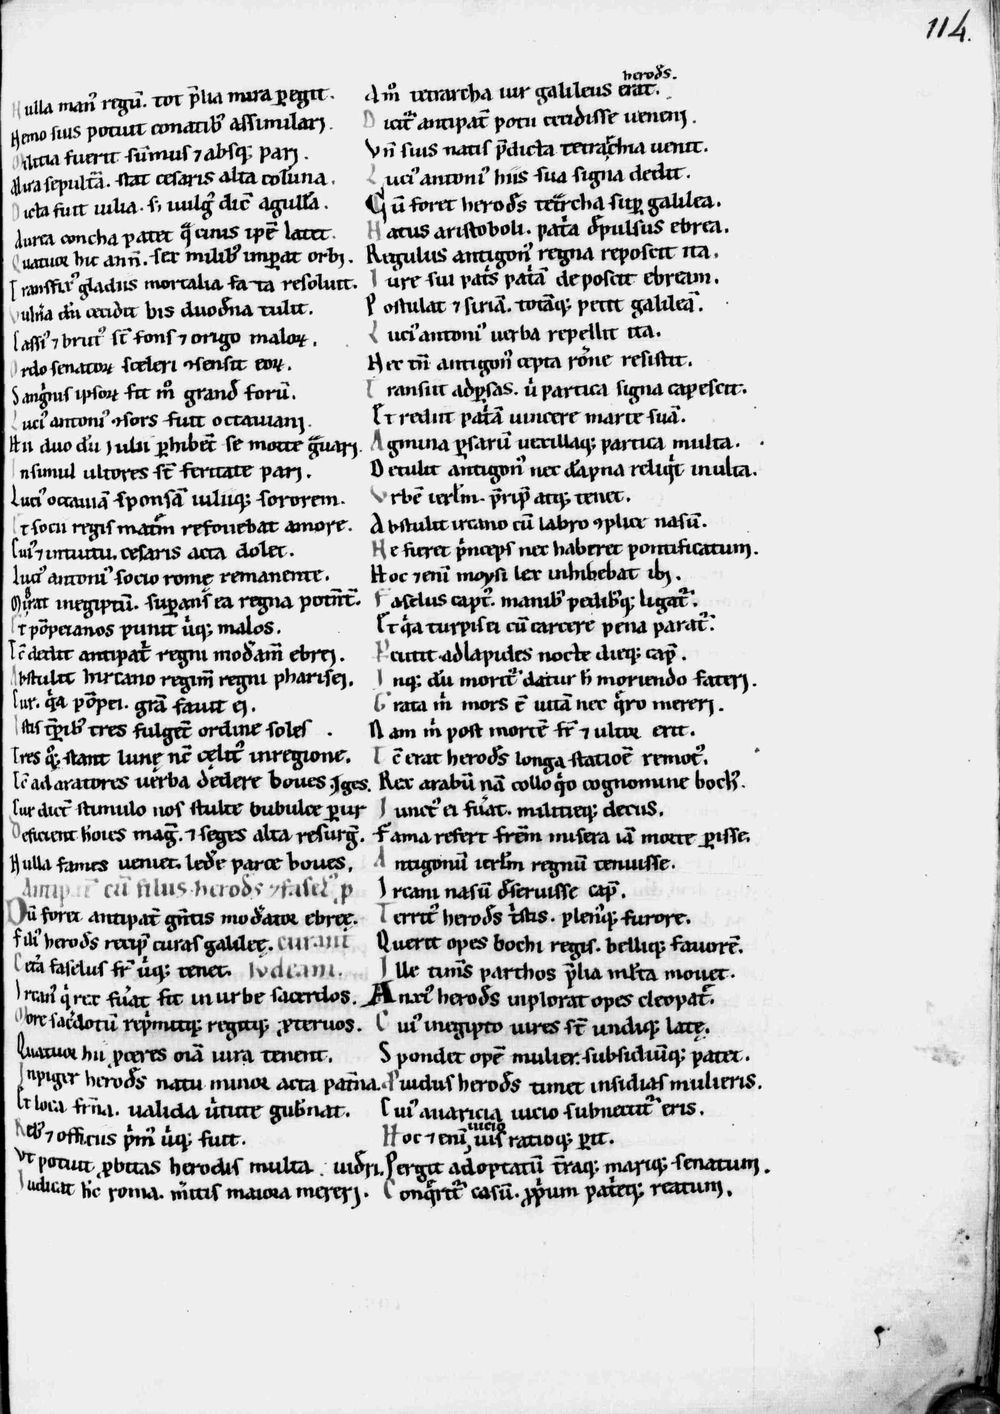 114.
Nulla man᷒ regū. tot p̄lia mira ꝑegit.
Nemo suis potuit conatib᷒ assimilari.
Militia fuerit sūmus ⁊ absq; pari.
Mira sepultā. stat cesaris alta coluna.
Dicta fuit iulia. s; uulg᷒ dic̄ agulla.
Aurea concha patet q̄ cinis ip̄e latet.
Quatuor hic ann̄. ser milib᷒ imperat orbi.
Transfix᷒ gladiis mortalia fata resoluit.
Vulnā dū cecidit bis duodena tulit.
Cassi᷒ ⁊ brut᷒ st̄ fons ⁊ origo maloꝝ.
Ordo senatoꝝ sceleri ꝯsensit eoꝝ.
Sanguis ipsoꝝ fit m̊ grande forū.
Luci᷒ antoni᷒ ꝯsors fuit octauiani.
Hii duo dū iulii ꝑhibēt se morte grauari.
Insimul ultores st̄ feritate pari.
Luci᷒ octauiā sponsā iuliiq; sororem.
Et socii regis matrem refouebat amore.
Cui᷒ ⁊ intuitu. cesaris acta dolet.
Luci᷒ antoni᷒ socio rome remanente.
Migrat inegiptū. suꝑans ea regna potent̄.
Et pōpeianos punit uq; malos.
Tc̄ dedit antipat̄ regni modam̄ ebrei.
Abstulit hircano regim̄ regni pharisei.
Cur. q̄a pōpei. gra᷒ fauit ei.
Istis tp̄rib᷒ tres fulgēt ordine soles.
Tres q; stant lune nc̄ celit᷒ inregione.
Tc̄ ad aratores uerba dedere boues. Iges.
Cur dicēt stimulo nos stulte bubulce ꝑur
Deficient hoies maḡ. ⁊ seges alta resurḡ.
Nulla fames ueniet. lede parce boues.
Antipat̄ cū filus herodes ⁊ fasel᷒ p
Dū foret antipat̄ gn̄tis modator ebree.
Fili᷒ herodes recip̄ curas galilee. curam
Cetā faselus fr̄ uq; tenet. Iudeam.
Ircan᷒ q̄ rex fuat fit in urbe sacerdos.
More sacdotū rep̄mitq; regitq; ꝓteruos.
Quatuor hii ꝓceres oīa iura tenent.
Inpiger herodes natu minor acta patna.
Et loca frn̄a. ualida uirtute gubnat.
Reb᷒ ⁊ officiis p̄m᷒ uq; fuit.
Vt potuit ꝓbitas herodis multa uideri.
Iudicat hc̄ roma. mitis maiora mereri.
herodes.
Am᷒ tetrarcha uir galileus erat.
Dicit᷒ antipat̄ potu cecidisse ueneni.
Vn̄ suis natis p̄dicta tetrarchia uenit.
Luci᷒ antoni᷒ hiis sua signa dedit.
Cū foret herodes tetrarcha suꝑ galilea.
Natus aristoboli. patā depulsus ebrea.
Regulus antigon᷒ regna reposcit ita.
Iure sui patis patā deposcit ebream.
Postulat ⁊ siriā. totāq; petit galileā.
Luci᷒ antoni᷒ uerba repellit ita.
Nec tn̄ antigon᷒ cepta rōne resistit.
Transiit adꝑsas. u partica signa capescit.
Et rediit patā uincere marte suā.
Agmina ꝑsarū uexillaq; partica multa.
Detulit antigon᷒ nec dāpna reliq̄t inulta.
Vrbē ierl̄m. p̄rip̄ atq; tenet.
Abstulit ircano cū labro ꝯplice nasū.
Ne fieret p̄nceps nec haberet pontificatum.
Hoc ⁊ enī moysi lex inhibebat ibi.
Faselus capt᷒. manib᷒ pedibq; ligat᷒.
Et q̄a turpis ei cū carcere pena parat᷒.
Pcutit adlapides nocte dieq; cap̄.
Inq; dū morit᷒ datur h̄ moriendo fateri.
Grata m̄ mors ē uitā nec q̄ro mereri.
Nam m̄ post mortē fr̄ ⁊ ultor erit.
Tc̄ erat herodes longa statiōe remot᷒.
Rex arabū nā collo q̊ cognomine boch᷒.
Iunct᷒ ei fuat. militieq; decus.
Fama refert fr̄em misera iā morte ꝑisse.
Antigonū ierl̄m regnū tenuisse.
Ircani nasū deseruisse cap̄.
Territ᷒ herodes tistis. plenuq; furore.
Querit opes bochi regis. belliq; fauorē.
Ille timēs parthos p̄lia ml̄ta mouet.
Anxi᷒ herodes inplorat opes cleopat̄.
Cui᷒ inegipto uires st̄ undiq; late.
Spondet opē mulier. subsidiūq; patet.
Puidus herodes timet insidias mulieris.
Cui᷒ auaricia uicio subnectit᷒ eris.
uicio
Hoc ⁊ enī uis ratioq; ꝑit.
Pergit adoptatū t̄raq; mariq; senatum.
Conq̄rit᷒ casū. ꝓprium pateq; reatum.